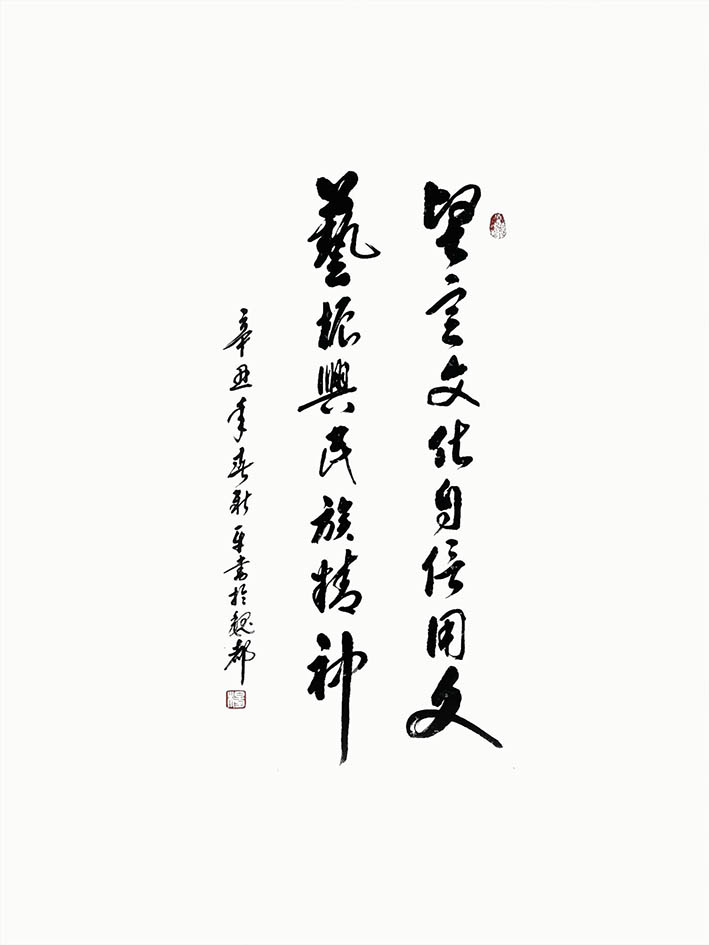 坚定文化自信用文
藝振興民族精神
辛丑年春新平書於魏都